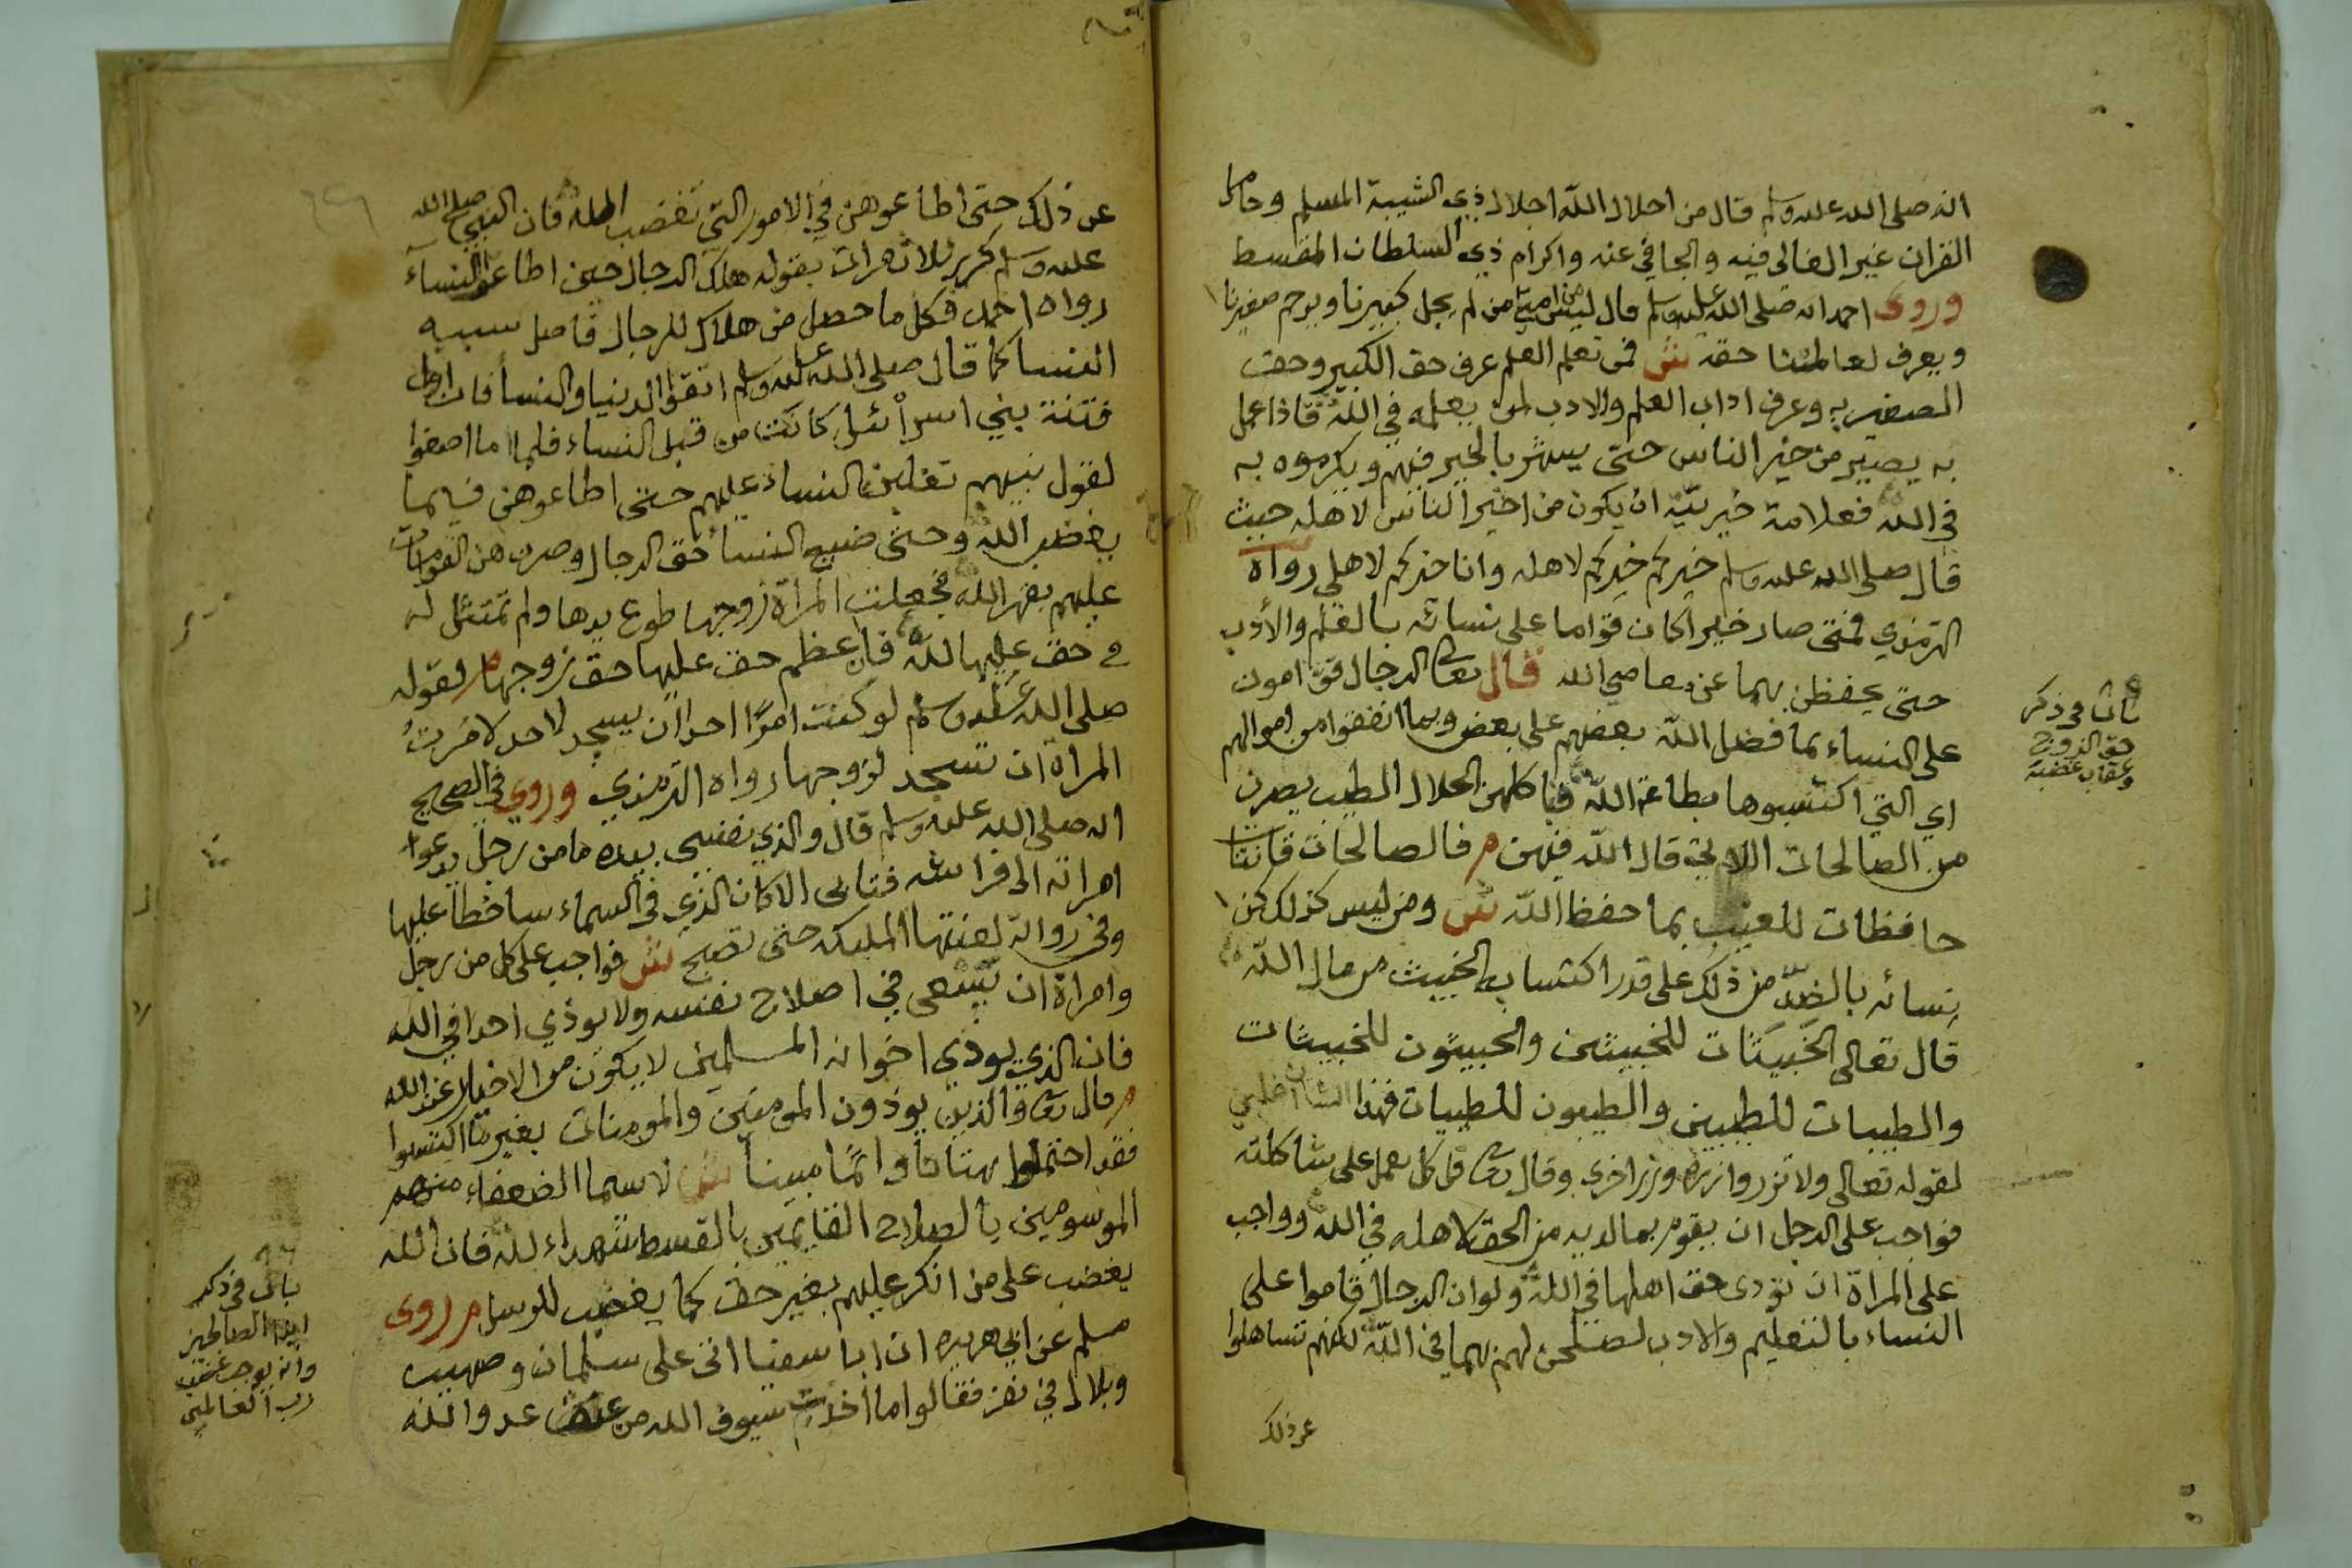 انه صلى الله عليه وسلم قال من اجلال الله اجلال ذي الشيبة المسلم وحامل
القران غير الغالي فيه والجافي عنه واكرام ذي السلطان المقسط
وروى احمد انه صلى الله عليه وسلم قال ليس من امتي من لم يجل كبيرنا ويرحم صغيرنا
ويعرف لعالمنا حقه ش فمن تعلم العلم عرف حق الكبير وحق
الصغير به وعرف اداب العلم والادب لمن يعلمه في الله فاذا عمل
به يصير من خير الناس حتى يبشر بالخير فيهم ويكرموه به
في الله فعلامة خيريته ان يكون من اخير الناس لاهله حيث
قال صلى الله عليه وسلم خيركم خيركم لاهله وانا خيركم لاهلي رواه
الترمذي فمتى صار خيرا كان قواما على نسائه بالعلم والأدب
حتى يحفظن بهما عن معاصي الله قال تعالى الرجال قوامون
على النساء بما فضل الله بعضهم على بعض وبما انفقوا من اموالهم
اي التي اكتسبوها بطاعة الله فباكلهن الحلال الطيب يصرن
من الصالحات اللاتي قال الله فيهن م فالصالحات قانتات
حافظات للغيب بما حفظ الله ش ومن ليس كذلك كن
نسائه بالضد من ذلك على قدر اكتسابه الخبيث من مال الله
قال تعالى الخبيثات للخبيثين والخبيثون للخبيثات
والطيبات للطيبين والطيبون للطيبات فهذا الشان اغلبي
لقوله تعالى ولا تزر وازرة وزر اخرى وقال تعالى قل كل يعمل على شاكلته
فواجب على الرجل ان يقوم بما لديه من الحق لاهله في الله وواجب
على المراة ان تؤدى حق اهلها في الله ولو ان الرجال قاموا على
النساء بالتعليم والادب لصلحن لهم بهما في الله لكنهم تساهلوا
عن ذلك
باب في ذكر
حق الزوج
وعقاب غضبه
عن ذلك حتى اطاعوهن في الامور التي تغضب الله فان النبي صلى الله
عليه وسلم كرر ثلاث مرات بقوله هلك الرجال حين اطاعوا النساء
رواه احمد فكل ما حصل من هلاك للرجال فاصل سببه
النسا كما قال صلى الله عليه وسلم اتقوا الدنيا والنسأ فان اول
فتنة بني اسرائيل كانت من قبل النساء فلما ما اصغوا
لقول نبيهم تغلبن النساء عليهم حتى اطاعوهن فيما
يغضب الله وحتى ضيع النسأ حق الرجال وصرن هن القوامات
عليهم بقهر الله فجعلت المرأة زوجها طوع يدها ولم تمتثل له
في حق عليها لله فان اعظم حق عليها حق زوجها م لقوله
صلى الله عليه وسلم لو كنت امرًا احدا ان يسجد لاحد لامرت
المراة ان تسجد لزوجها رواه الترمذي وروي في الصحيح
انه صلى الله عليه وسلم قال والذي نفسي بيده ما من رجل يدعوا
امراته الى فراشه فتابى الا كان الذي في السماء ساخطا عليها
وفي رواية لعنتها المليكه حتى تصبح ش فواجب على كل من رجل
وامراة ان يسعى في اصلاح نفسه ولا يوذي احدا في الله
فان الذي يوذي اخوانه المسلمين لا يكون من الاخيار عند الله
م قال تعالى والذين يوذون المومنين والمومنات بغير ما اكتسبوا
فقد احتملوا بهتانا واثما مبينا ش لاسيما الضعفاء منهم
الموسومين بالصلاح القايمين بالقسط شهداء لله فان الله
يغضب على من انكر عليهم بغير حق كما يغضب للرسل م روى
مسلم عن ابي هريره ان ابا سفيا اتى على سلمان وصهيب
وبلال في نفر فقالوا ما اخذت سيوف الله من عنق عدو الله
باب في ذكر
ايذا الصالحين
وانه يوجب غضب
رب العالمين